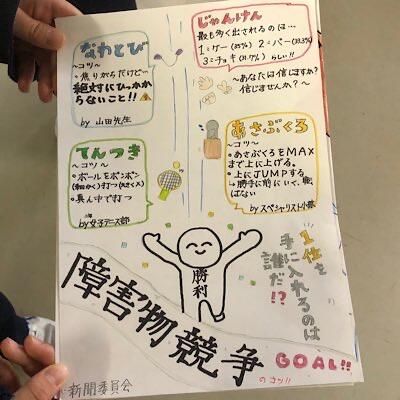 なわとび
〜コツ〜
・焦りがちだけど…
絶対にひっかか
らないこと!!
by 山田先生
じゃんけん
最も多く出されるのは…
1:グー(35%) 2:パー(33.3%)
3:チョキ(31.7%) らしい!!
〜あなたは信じますか?
信じませんか?〜
てんつき
〜コツ〜
・ボールをポンポン
(細かく)打つ
・真ん中で打つ
by 女子テニス部
あさぶくろ
〜コツ〜
・あさぶくろをMAX
まで上に上げる。
・上にJUMPする
by スペシャリスト小勝
勝利
1位を
手に入れるのは
誰だ!?
障害物競争
のコツ!!
GOAL!!
新聞委員会